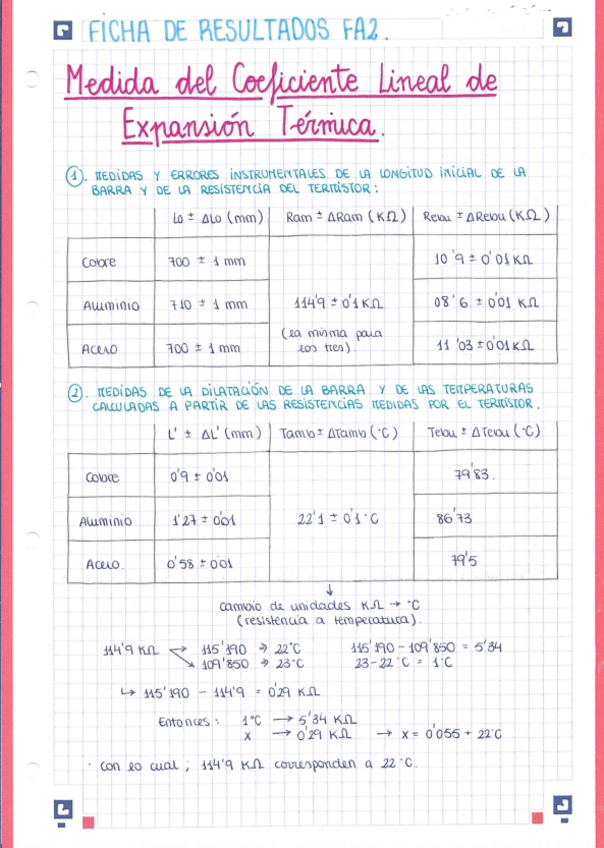 FICHA DE RESULTADOS FA2.
Medida del Coeficiente Lineal de
Expansión Térmica.
1. MEDIDAS Y ERRORES INSTRUMENTALES DE LA LONGITUD INICIAL DE LA
BARRA Y DE LA RESISTENCIA DEL TERMISTOR:
Lo ± ΔLo (mm) Ram ± ΔRam (KΩ) Rebu ± ΔRebu (KΩ)
Cobre 700 ± 1 mm 10'9 ± 0'01 KΩ
Aluminio 710 ± 1 mm 114'9 ± 0'1 KΩ 08'6 ± 0'01 KΩ
(la misma para
los tres).
Acero 700 ± 1 mm 11'03 ± 0'01 KΩ
2. MEDIDAS DE LA DILATACIÓN DE LA BARRA Y DE LAS TEMPERATURAS
CALCULADAS A PARTIR DE LAS RESISTENCIAS MEDIDAS POR EL TERMISTOR.
L' ± ΔL' (mm) Tamb ± ΔTamb (°C) Tebu ± ΔTebu (°C)
Cobre 0'9 ± 0'01 79'83.
Aluminio 1'27 ± 0'01 22'1 ± 0'1 °C 86'73
Acero. 0'58 ± 0'01 79'5
↓
cambio de unidades KΩ → °C
(resistencia a temperatura).
114'9 KΩ → 115'190 ⇒ 22°C 115'190 - 109'850 = 5'34
↘ 109'850 ⇒ 23°C 23-22 °C = 1°C
↳ 115'190 - 114'9 = 0'29 KΩ
Entonces: 1°C → 5'34 KΩ
x → 0'29 KΩ → x = 0'055 + 22°C
· Con lo cual; 114'9 KΩ corresponden a 22°C.